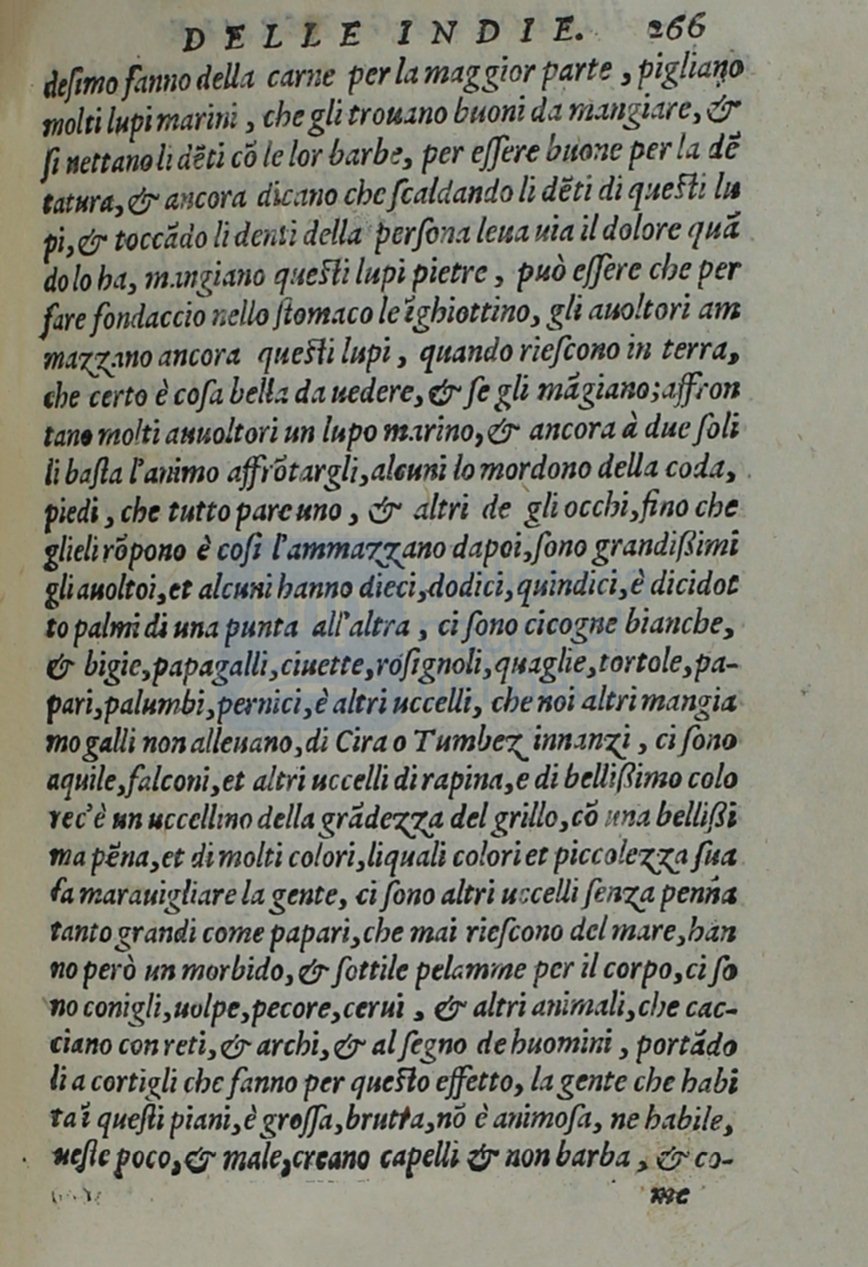 DELLE INDIE. 266
deſimo fanno della carne per la maggior parte, pigliano
molti lupi marini, che gli trouano buoni da mangiare, &
ſi nettano li dēti cō le lor barbe, per eſſere buone per la dē
tatura, & ancora dicano che ſcaldando li dēti di queſti lu
pi, & toccādo li denti della perſona leua uia il dolore quā
do lo ha, mangiano queſti lupi pietre, può eſſere che per
fare fondaccio nello ſtomaco le īghiottino, gli auoltori am
mazzano ancora queſti lupi, quando rieſcono in terra,
che certo è coſa bella da uedere, & ſe gli māgiano; affron
tano molti auuoltori un lupo marino, & ancora à due ſoli
li baſta l'animo affrōtargli, alcuni lo mordono della coda,
piedi, che tutto pare uno, & altri de gli occhi, fino che
glieli rōpono è coſi l'ammazzano dapoi, ſono grandiſsimi
gli auoltoi, et alcuni hanno dieci, dodici, quindici, è dicidot
to palmi di una punta all'altra, ci ſono cicogne bianche,
& bigie, papagalli, ciuette, roſignoli, quaglie, tortole, pa-
pari, palumbi, pernici, è altri uccelli, che noi altri mangia
mo galli non alleuano, di Cira o Tumbez innanzi, ci ſono
aquile, falconi, et altri uccelli di rapina, e di belliſsimo colo
re c'è un uccellino della grādezza del grillo, cō una belliſsi
ma pēna, et di molti colori, li quali colori et piccolezza ſua
fa marauigliare la gente, ci ſono altri uccelli ſenza penna
tanto grandi come papari, che mai rieſcono del mare, han
no però un morbido, & ſottile pelamme per il corpo, ci ſo
no conigli, uolpe, pecore, cerui, & altri animali, che cac-
ciano con reti, & archi, & al ſegno de huomini, portādo
li a cortigli che fanno per queſto effetto, la gente che habi
ta ī queſti piani, è groſſa, brutta, nō è animoſa, ne habile,
ueſte poco, & male, creano capelli & non barba, & co-
me